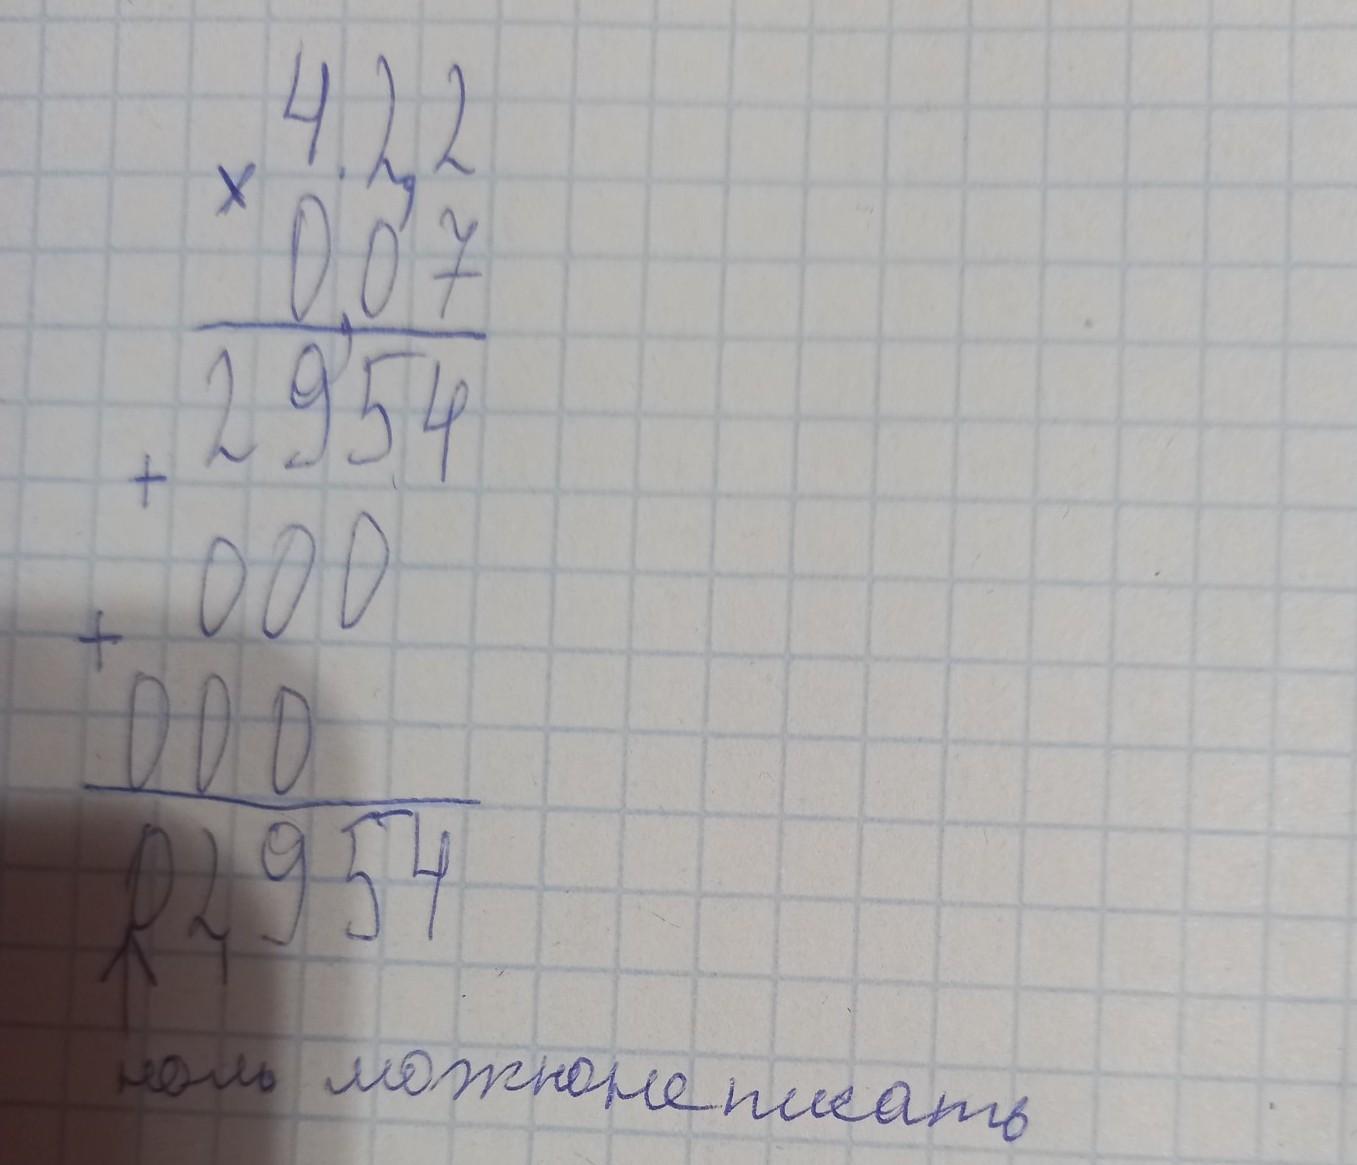 42,2
× 0,07
2954
+ 000
+ 000
02,954
ноль можно не писать